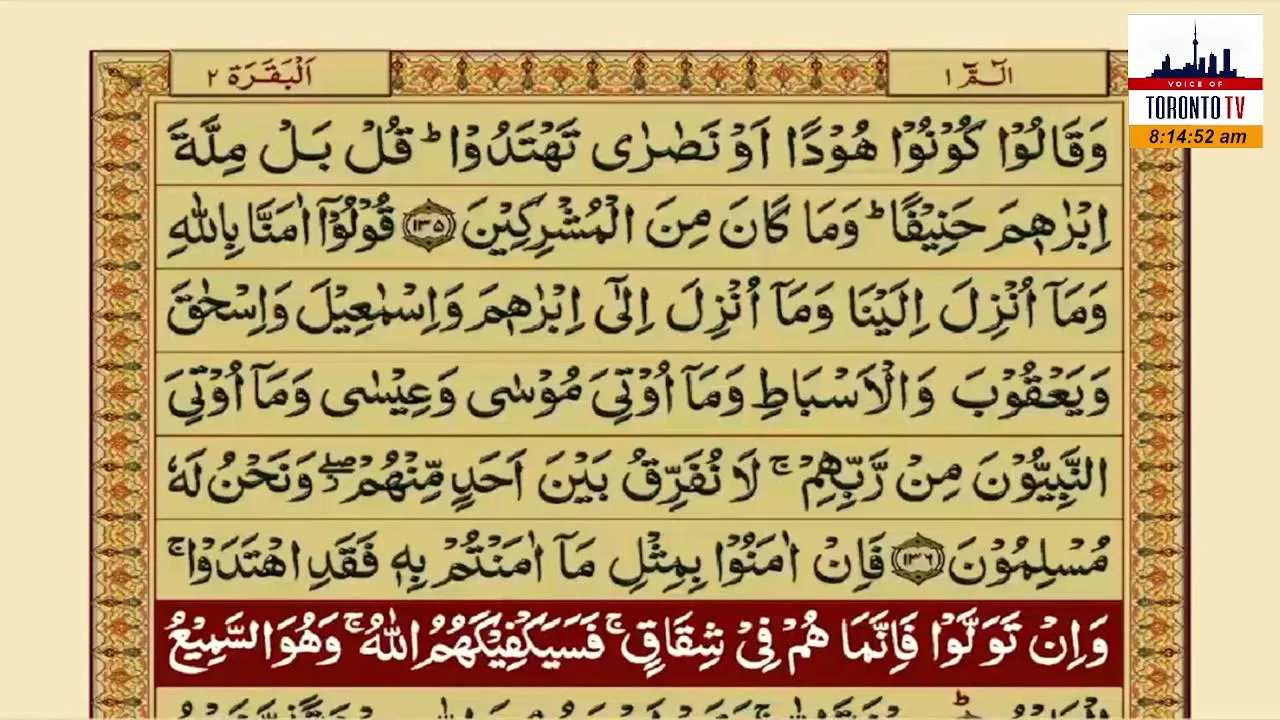 اَلْبَقَرَة ٢
الٓمّٓ ١
VOICE OF
TORONTO TV
8:14:52 am
وَقَالُوْا كُوْنُوْا هُوْدًا اَوْ نَصٰرٰى تَهْتَدُوْا ؕ قُلْ بَلْ مِلَّةَ
اِبْرٰهٖمَ حَنِيْفًا ؕ وَمَا كَانَ مِنَ الْمُشْرِكِيْنَ ۝١٣٥ قُوْلُوْۤا اٰمَنَّا بِاللّٰهِ
وَمَاۤ اُنْزِلَ اِلَيْنَا وَمَاۤ اُنْزِلَ اِلٰٓى اِبْرٰهٖمَ وَاِسْمٰعِيْلَ وَاِسْحٰقَ
وَيَعْقُوْبَ وَالْاَسْبَاطِ وَمَاۤ اُوْتِيَ مُوْسٰى وَعِيْسٰى وَمَاۤ اُوْتِيَ
النَّبِيُّوْنَ مِنْ رَّبِّهِمْ ۚ لَا نُفَرِّقُ بَيْنَ اَحَدٍ مِّنْهُمْ ۖ وَنَحْنُ لَهٗ
مُسْلِمُوْنَ ۝١٣٦ فَاِنْ اٰمَنُوْا بِمِثْلِ مَاۤ اٰمَنْتُمْ بِهٖ فَقَدِ اهْتَدَوْا ۚ
وَاِنْ تَوَلَّوْا فَاِنَّمَا هُمْ فِيْ شِقَاقٍ ۚ فَسَيَكْفِيْكَهُمُ اللّٰهُ ۚ وَهُوَ السَّمِيْعُ